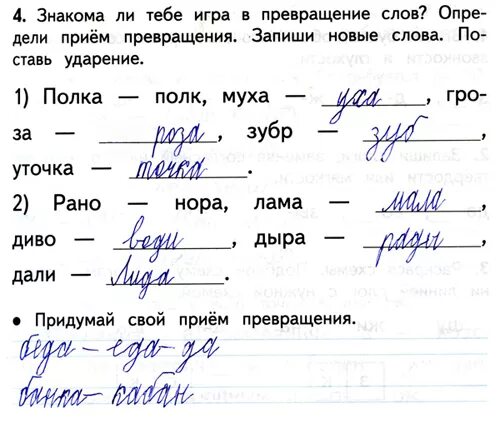 4. Знакома ли тебе игра в превращение слов? Опре-
дели приём превращения. Запиши новые слова. По-
ставь ударение.
1) Полка — полк, муха — уха, гро-
за — роза, зубр — зуб,
уточка — точка.
2) Рано — нора, лама — мала,
диво — води, дыра — рады,
дали — Лида.
• Придумай свой приём превращения.
беда – еда – да
банка – кабан